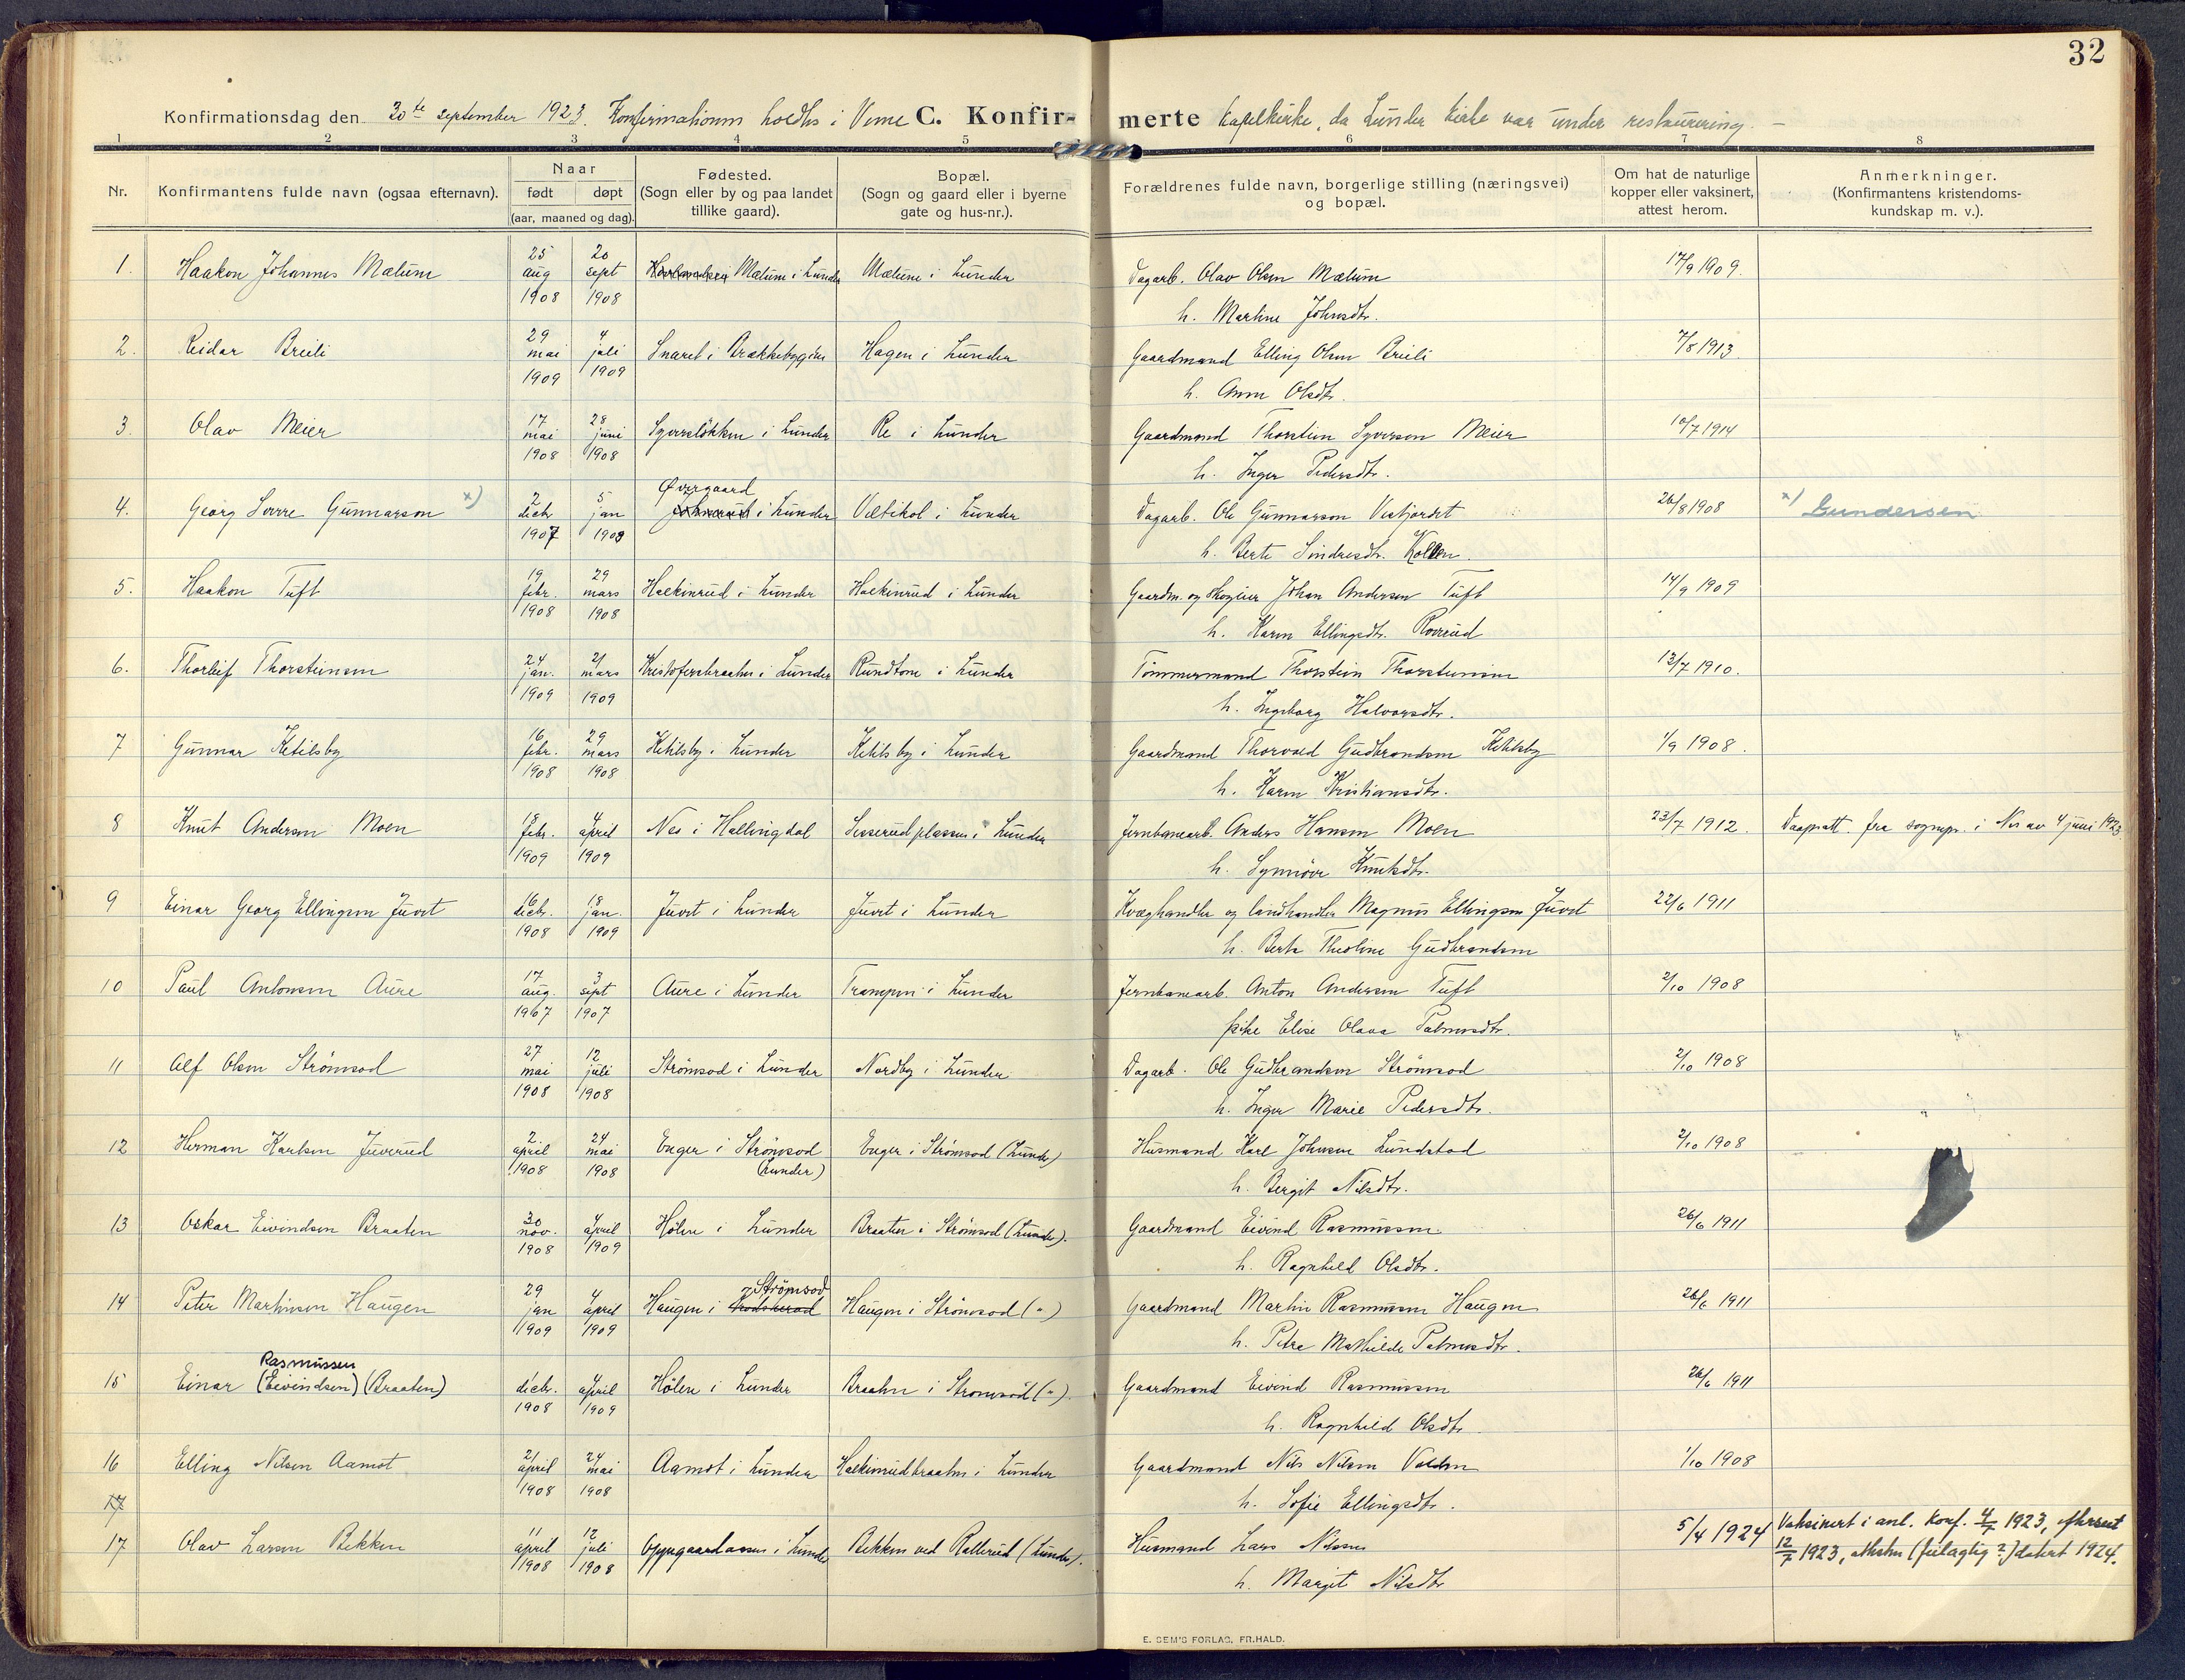 32
Konfirmationsdag den 30te september 1923. Konfirmationen holdtes i Veme C. Konfir-merte kapelkirke, da Lunder kirke var under restaurering. –
1 2 3 4 5 6 7 8
Nr. Konfirmantens fulde navn (ogsaa efternavn). Naar født døpt (aar, maaned og dag). Fødested. (Sogn eller by og paa landet tillike gaard). Bopæl. (Sogn og gaard eller i byerne gate og hus-nr.). Forældrenes fulde navn, borgerlige stilling (næringsvei) og bopæl. Om hat de naturlige kopper eller vaksinert, attest herom. Anmerkninger. (Konfirmantens kristendoms-kundskap m. v.).
1. Haakon Johannes Mælum 25 aug 1908 20 sept 1908 Mælum i Lunder Mælum i Lunder Dagarb. Olav Olsen Mælum 17/9 1909.
h. Marthe Johnsdtr.
2. Reidar Breili 29 mai 1909 4 juli 1909 Snaret i Brækkebygden Hagen i Lunder Gaardmand Elling Olsen Breili 7/8 1913.
h. Anne Olsdtr.
3. Olav Meier 17 mai 1908 28 juni 1908 Syversløkken i Lunder Re i Lunder Gaardmand Thorstein Syversen Meier 10/7 1914
h. Inger Pedersdtr.
4. Georg Sverre Gunnarson x) 2 decbr 1907 5 jan 1908 Øvergaard i Lunder Veltikol i Lunder Dagarb. Ole Gunnarson Vestjordet 26/8 1908 x) Gundersen
h. Berte Sindresdtr. Kollen.
5. Haakon Tuft 19 febr. 1908 29 mars 1908 Halkinrud i Lunder Halkinrud i Lunder Gaardm. og skogeier Johan Andersen Tuft 14/9 1909
h. Karen Ellingsdtr. Roverud
6. Thorleif Thorsteinsen 24 jan. 1909 21 mars 1909 Kristofersbraaten i Lunder Rundtom i Lunder Tømmermand Thorstein Thorsteinsen 13/7 1910.
h. Ingeborg Halvorsdtr.
7 Gunnar Ketilsby 16 febr. 1908 29 mars 1908 Ketilsby i Lunder Ketilsby i Lunder Gaardmand Thorvald Gudbrandsen Ketilsby 1/9 1908.
h. Karen Kristiansdtr.
8 Knut Andersen Moen 18 febr. 1909 4 april 1909 Nes i Hallingdal Sisserudplassen i Lunder Jernbanearb. Anders Hansen Moen 23/7 1912. Daapsatt. fra sognepr. i Nes av 4 juni 1923
h. Synnøve Knutsdtr.
9 Einar Georg Ellingsen Juvet 16 decbr. 1908 18 jan. 1909 Juvet i Lunder Juvet i Lunder Kvæghandler og landhandler Magnus Ellingsen Juvet 22/6 1911
h. Berte Theoline Gudbrandsen
10 Paul Antonsen Aure 17 aug. 1907 3 sept 1907 Aure i Lunder Trampen i Lunder Jernbanearb. Anton Andersen Tuft 2/10 1908
pike Elise Olava Palmesdtr.
11 Alf Olsen Strømsod 27 mai 1908 12 juli 1908 Strømsod i Lunder Nordby i Lunder Dagarb. Ole Gudbrandsen Strømsod 2/10 1908
h. Inger Marie Pedersdtr.
12 Herman Karlsen Juverud 2 april 1908 24 mai 1908 Enger i Strømsod (Lunder) Enger i Strømsod (Lunder) Husmand Karl Johnsen Lundstad 2/10 1908
h. Bergit Nilsdtr.
13 Oskar Eivindsen Braaten 30 nov. 1908 4 april 1909 Hølen i Lunder Braaten i Strømsod (Lunder). Gaardmand Eivind Rasmussen 26/6 1911
h. Ragnhild Olsdtr.
14 Peter Martinsen Haugen 29 jan 1909 4 april 1909 Haugen i Krødsherad Strømsod Haugen i Strømsod (") Gaardmand Martin Rasmussen Haugen 26/6 1911
h. Petra Mathilde Palmesdtr.
15 Einar Rasmussen (Eivindsen) (Braaten) 1 decbr. 1908 4 april 1909 Hølen i Lunder Braaten i Strømsod ("). Gaardmand Eivind Rasmussen 26/6 1911
h. Ragnhild Olsdtr.
16 Elling Nilsen Aamot 21 april 1908 24 mai 1908 Aamot i Lunder Halkinrudbraaten i Lunder Gaardmand Nils Nilsen Volden 1/10 1908
h. Sofie Ellingsdtr.
17
17 Olav Larsen Bekken 11 april 1908 12 juli 1908 i Lunder Bekken ved Rallerud (Lunder). Husmand Lars Nilsen 5/4 1924 Vaksinert i anl. konf. 4/7 1923, efterseet 12/7 1923, attesten (feilagtig?) datert 1924.
h. Margit Nilsdtr
E. SEM'S FORLAG, FR.HALD.